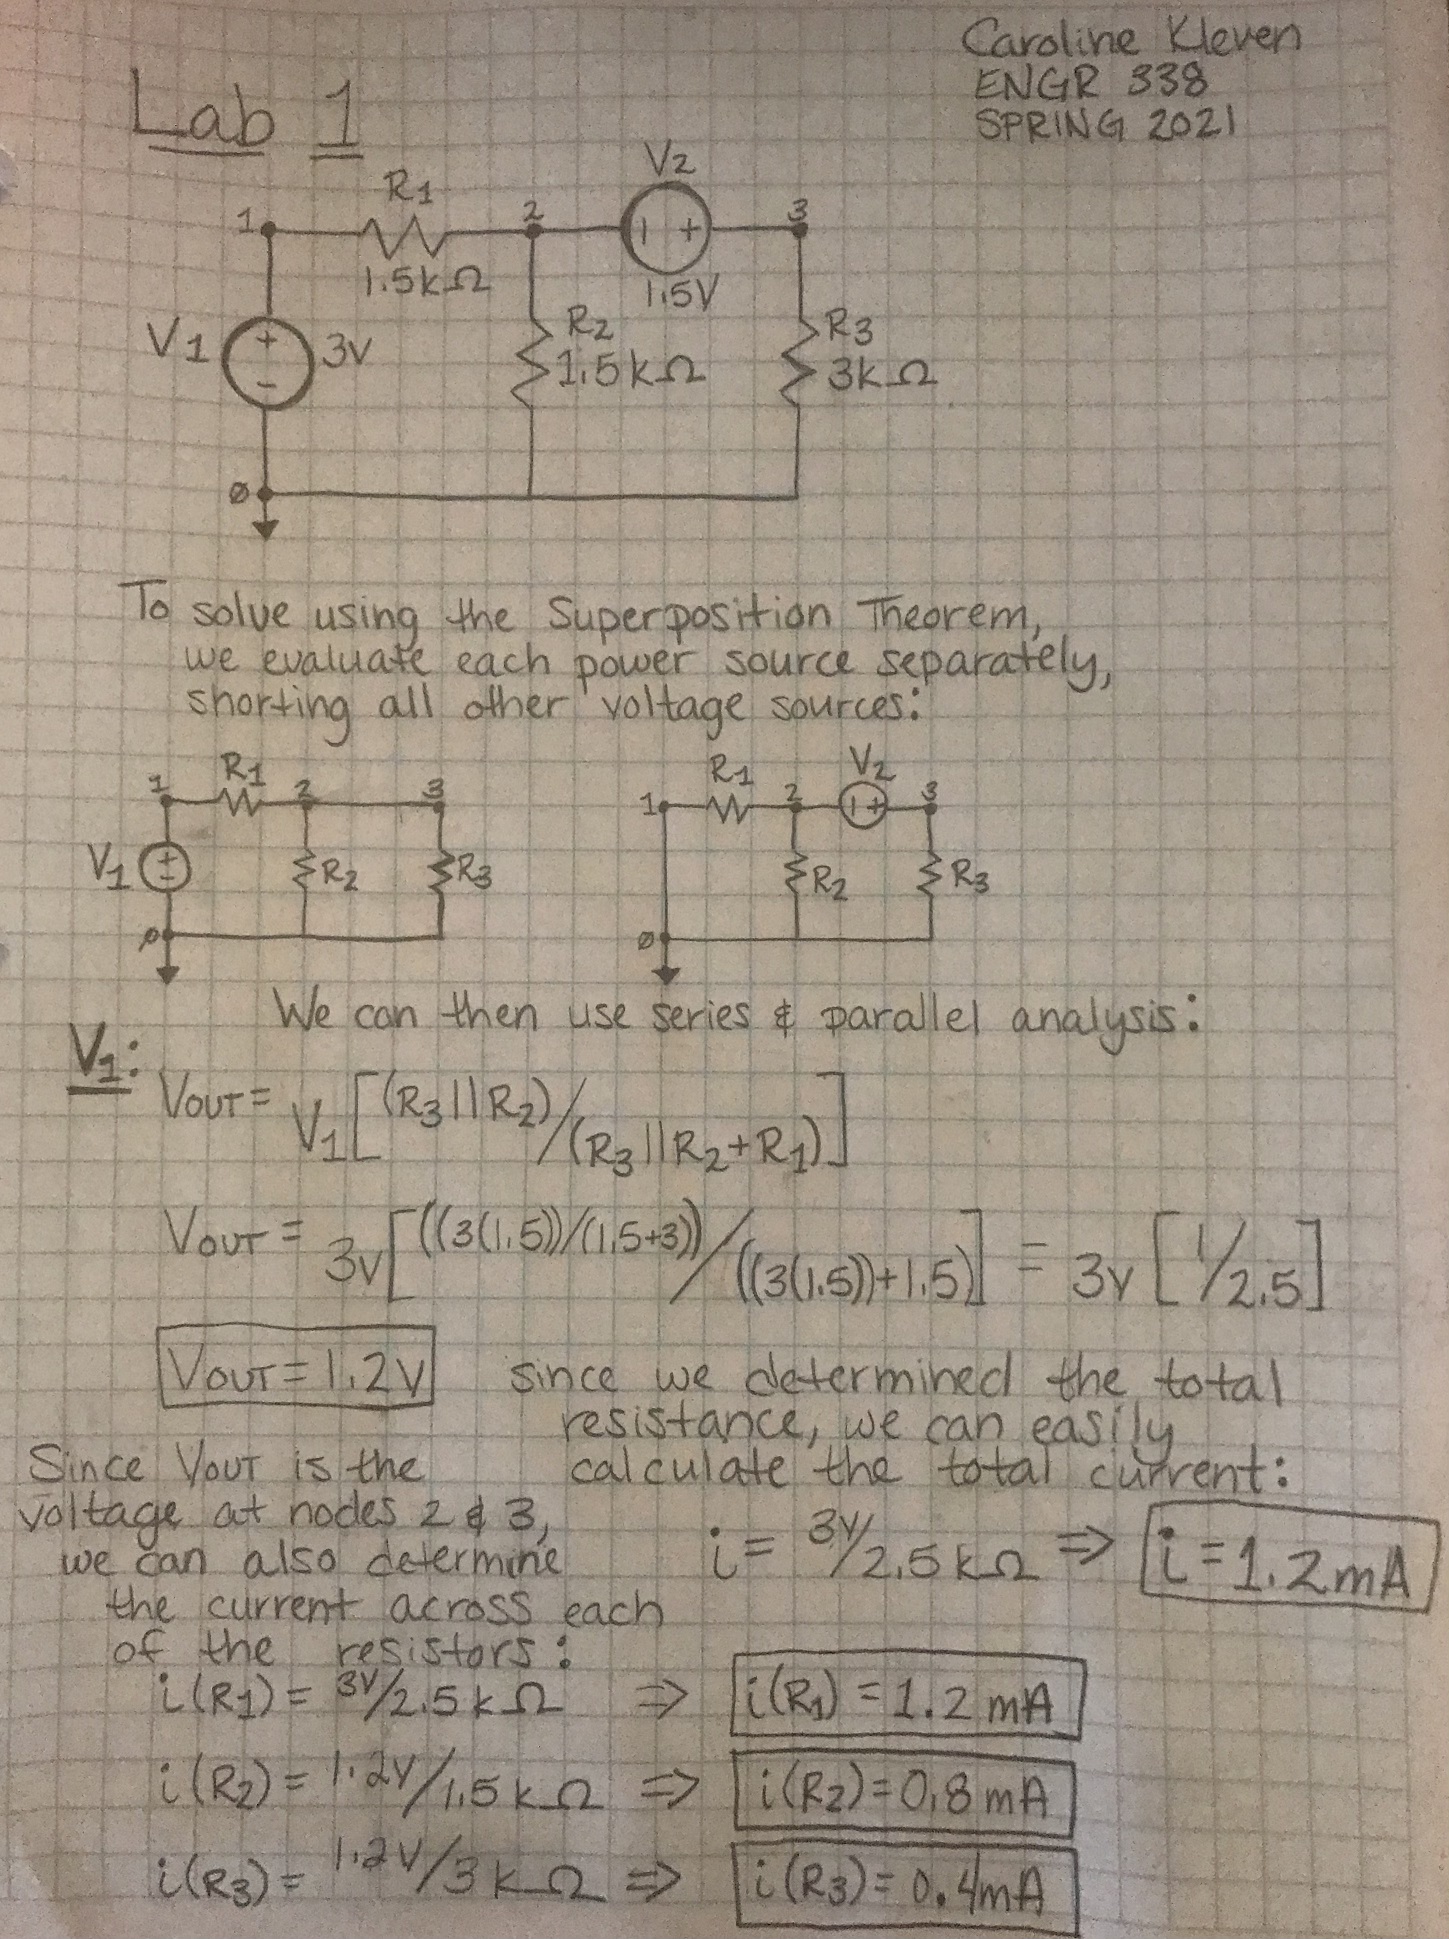 Caroline Kleven
ENGR 338
SPRING 2021
Lab 1
V2
R1
1 2 3
- +
1.5kΩ
1.5V
V1 + - 3V
R2
1.5kΩ
R3
3kΩ
Ø
To solve using the Superposition Theorem,
we evaluate each power source separately,
shorting all other voltage sources:
R1
1 2 3
V1 + - R2 R3
Ø
R1 V2
1 2 - + 3
R2 R3
Ø
We can then use series & parallel analysis:
V1:
VOUT = V1[(R3||R2)/(R3||R2+R1)]
VOUT = 3V[((3(1.5))/(1.5+3))/((3(1.5))+1.5)] = 3V[1/2.5]
VOUT = 1.2V
since we determined the total
resistance, we can easily
calculate the total current:
i = 3V/2.5kΩ ⇒ i = 1.2mA
Since VOUT is the
voltage at nodes 2 & 3,
we can also determine
the current across each
of the resistors:
i(R1) = 3V/2.5kΩ ⇒ i(R1) = 1.2mA
i(R2) = 1.2V/1.5kΩ ⇒ i(R2) = 0.8mA
i(R3) = 1.2V/3kΩ ⇒ i(R3) = 0.4mA